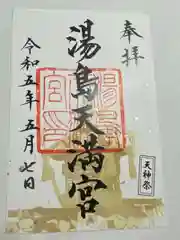 奉拝
湯島天満宮
天神祭
令和五年五月七日